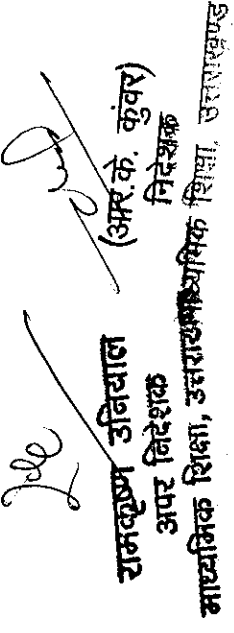 (आर.के. कुंवर)
निदेशक
माध्यमिक शिक्षा, उत्तराखण्ड
रामकृष्ण उनियाल
अपर निदेशक
माध्यमिक शिक्षा, उत्तराखण्ड